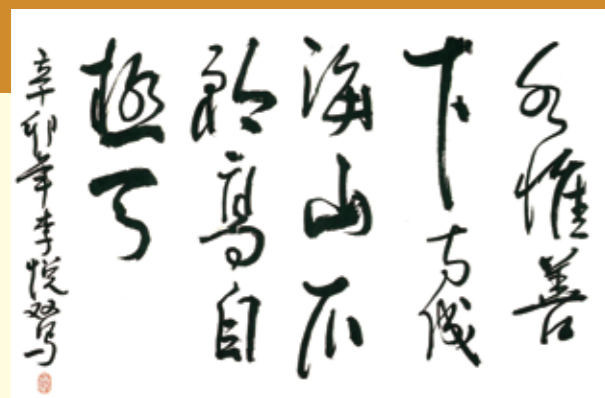 水惟善
下方成
海山不
矜高自
极天
辛卯年李悦双写